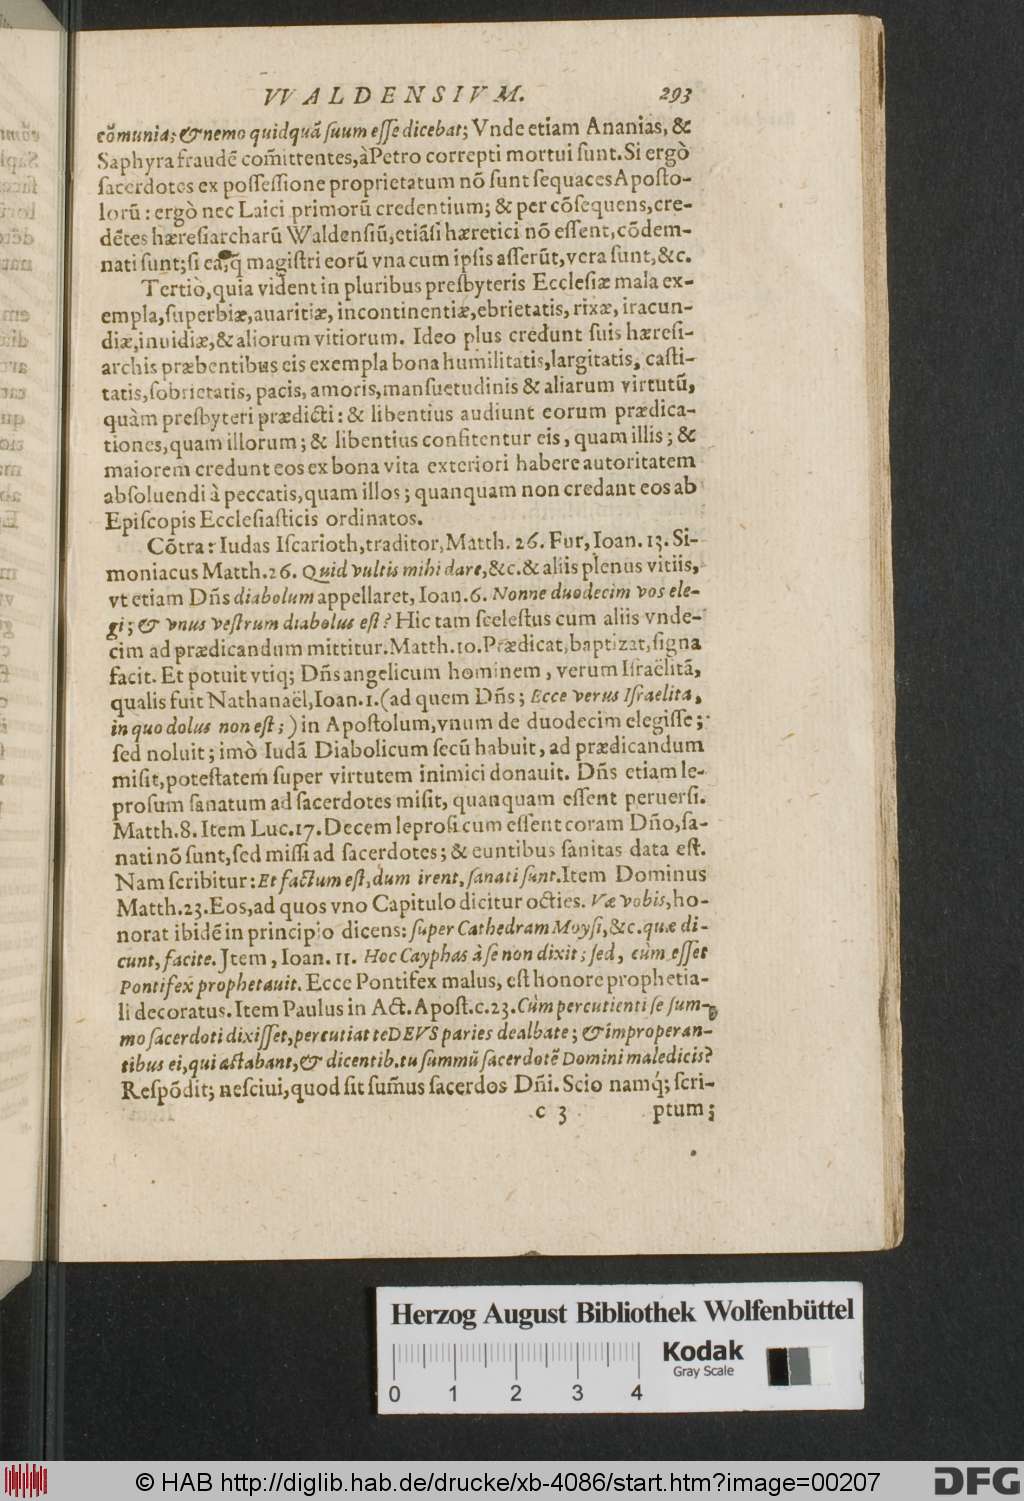 VVALDENSIVM. 293
cõmunia; & nemo quidquã ſuum eſſe dicebat; Vnde etiam Ananias, &
Saphyra fraudẽ com̃ittentes, à Petro correpti mortui ſunt. Si ergò
ſacerdotes ex poſſeſſione proprietatum nõ ſunt ſequaces Apoſto-
lorũ: ergò nec Laici primorũ credentium; & per cõſequens, cre-
dẽtes hæreſiarcharũ Waldenſiũ, etiãſi hæretici nõ eſſent, cõdem-
nati ſunt; ſi ea, q̃ magiſtri eorũ vna cum ipſis aſſerũt, vera ſunt, &c.
Tertiò, quia vident in pluribus presbyteris Eccleſiæ mala ex-
empla, ſuperbiæ, auaritiæ, incontinentiæ, ebrietatis, rixæ, iracun-
diæ, inuidiæ, & aliorum vitiorum. Ideo plus credunt ſuis hæreſi-
archis præbentibus eis exempla bona humilitatis, largitatis, caſti-
tatis, ſobrietatis, pacis, amoris, manſuetudinis & aliarum virtutũ,
quàm presbyteri prædicti: & libentius audiunt eorum prædica-
tiones, quam illorum; & libentius confitentur eis, quam illis; &
maiorem credunt eos ex bona vita exteriori habere autoritatem
abſoluendi à peccatis, quam illos; quanquam non credant eos ab
Epiſcopis Eccleſiaſticis ordinatos.
Cõtra: Iudas Iſcarioth, traditor, Matth. 26. Fur, Ioan. 13. Si-
moniacus Matth. 26. Quid vultis mihi dare, &c. & aliis plenus vitiis,
vt etiam Dñs diabolum appellaret, Ioan. 6. Nonne duodecim vos ele-
gi; & vnus veſtrum diabolus eſt? Hic tam ſceleſtus cum aliis vnde-
cim ad prædicandum mittitur. Matth. 10. Prædicat, baptizat, ſigna
facit. Et potuit vtiq; Dñs angelicum hominem, verum Iſraëlitã,
qualis fuit Nathanaël, Ioan. 1. (ad quem Dñs; Ecce verus Iſraelita,
in quo dolus non eſt;) in Apoſtolum, vnum de duodecim elegiſſe;
ſed noluit; imò Iudã Diabolicum ſecũ habuit, ad prædicandum
miſit, poteſtatem ſuper virtutem inimici donauit. Dñs etiam le-
proſum ſanatum ad ſacerdotes miſit, quanquam eſſent peruerſi.
Matth. 8. Item Luc. 17. Decem leproſi cum eſſent coram Dño, ſa-
nati nõ ſunt, ſed miſſi ad ſacerdotes; & euntibus ſanitas data eſt.
Nam ſcribitur: Et factum eſt, dum irent, ſanati ſunt. Item Dominus
Matth. 23. Eos, ad quos vno Capitulo dicitur octies. Væ vobis, ho-
norat ibidẽ in principio dicens: ſuper Cathedram Moyſi, &c. quæ di-
cunt, facite. Jtem, Ioan. 11. Hoc Cayphas à ſe non dixit; ſed, cùm eſſet
Pontifex prophetauit. Ecce Pontifex malus, eſt honore prophetia-
li decoratus. Item Paulus in Act. Apoſt. c. 23. Cùm percutienti ſe ſum-
mo ſacerdoti dixiſſet, percutiat te DEVS paries dealbate; & improperan-
tibus ei, qui aſtabant, & dicentib. tu ſummũ ſacerdotẽ Domini maledicis?
Reſpõdit; neſciui, quod ſit ſum̃us ſacerdos Dñi. Scio namq́; ſcri-
c 3 ptum;
Herzog August Bibliothek Wolfenbüttel
Kodak
Gray Scale
0 1 2 3 4
© HAB http://diglib.hab.de/drucke/xb-4086/start.htm?image=00207
DFG